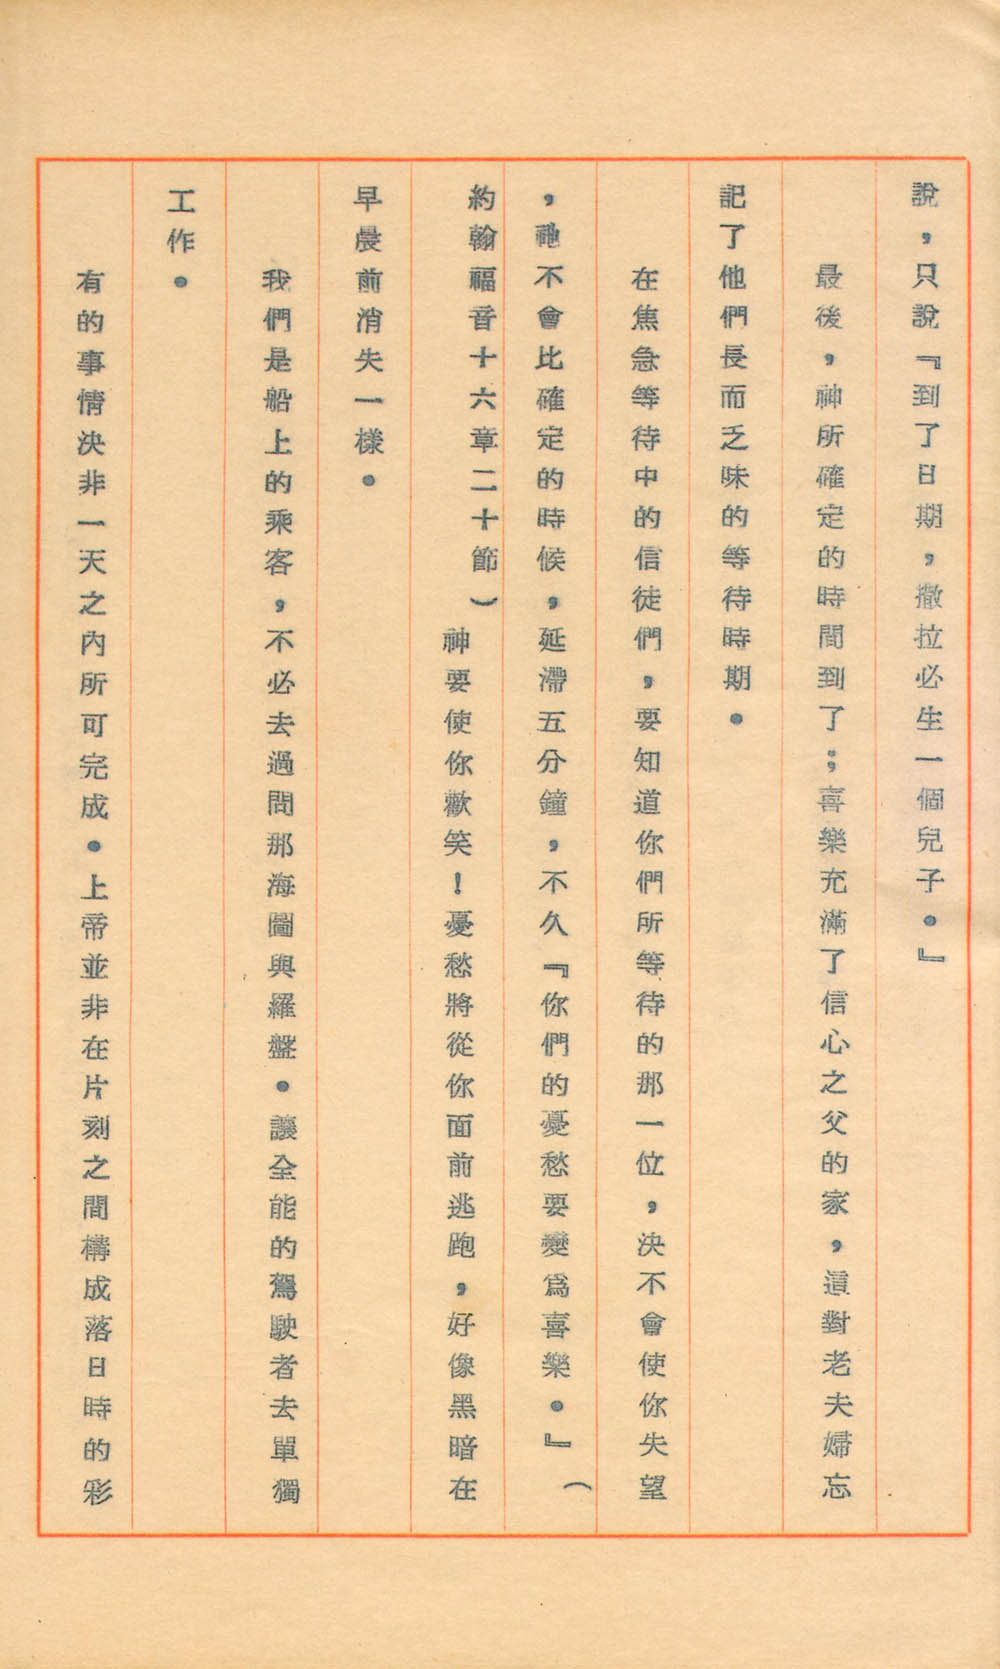 說，只說『到了日期，撒拉必生一個兒子。』
最後，神所確定的時間到了；喜樂充滿了信心之父的家，這對老夫婦忘
記了他們長而乏味的等待時期。
在焦急等待中的信徒們，要知道你們所等待的那一位，決不會使你失望
，祂不會比確定的時候，延滯五分鐘，不久『你們的憂愁要變爲喜樂。』（
約翰福音十六章二十節）神要使你歡笑！憂愁將從你面前逃跑，好像黑暗在
早晨前消失一樣。
我們是船上的乘客，不必去過問那海圖與羅盤。讓全能的駕駛者去單獨
工作。
有的事情決非一天之內所可完成。上帝並非在片刻之間構成落日時的彩